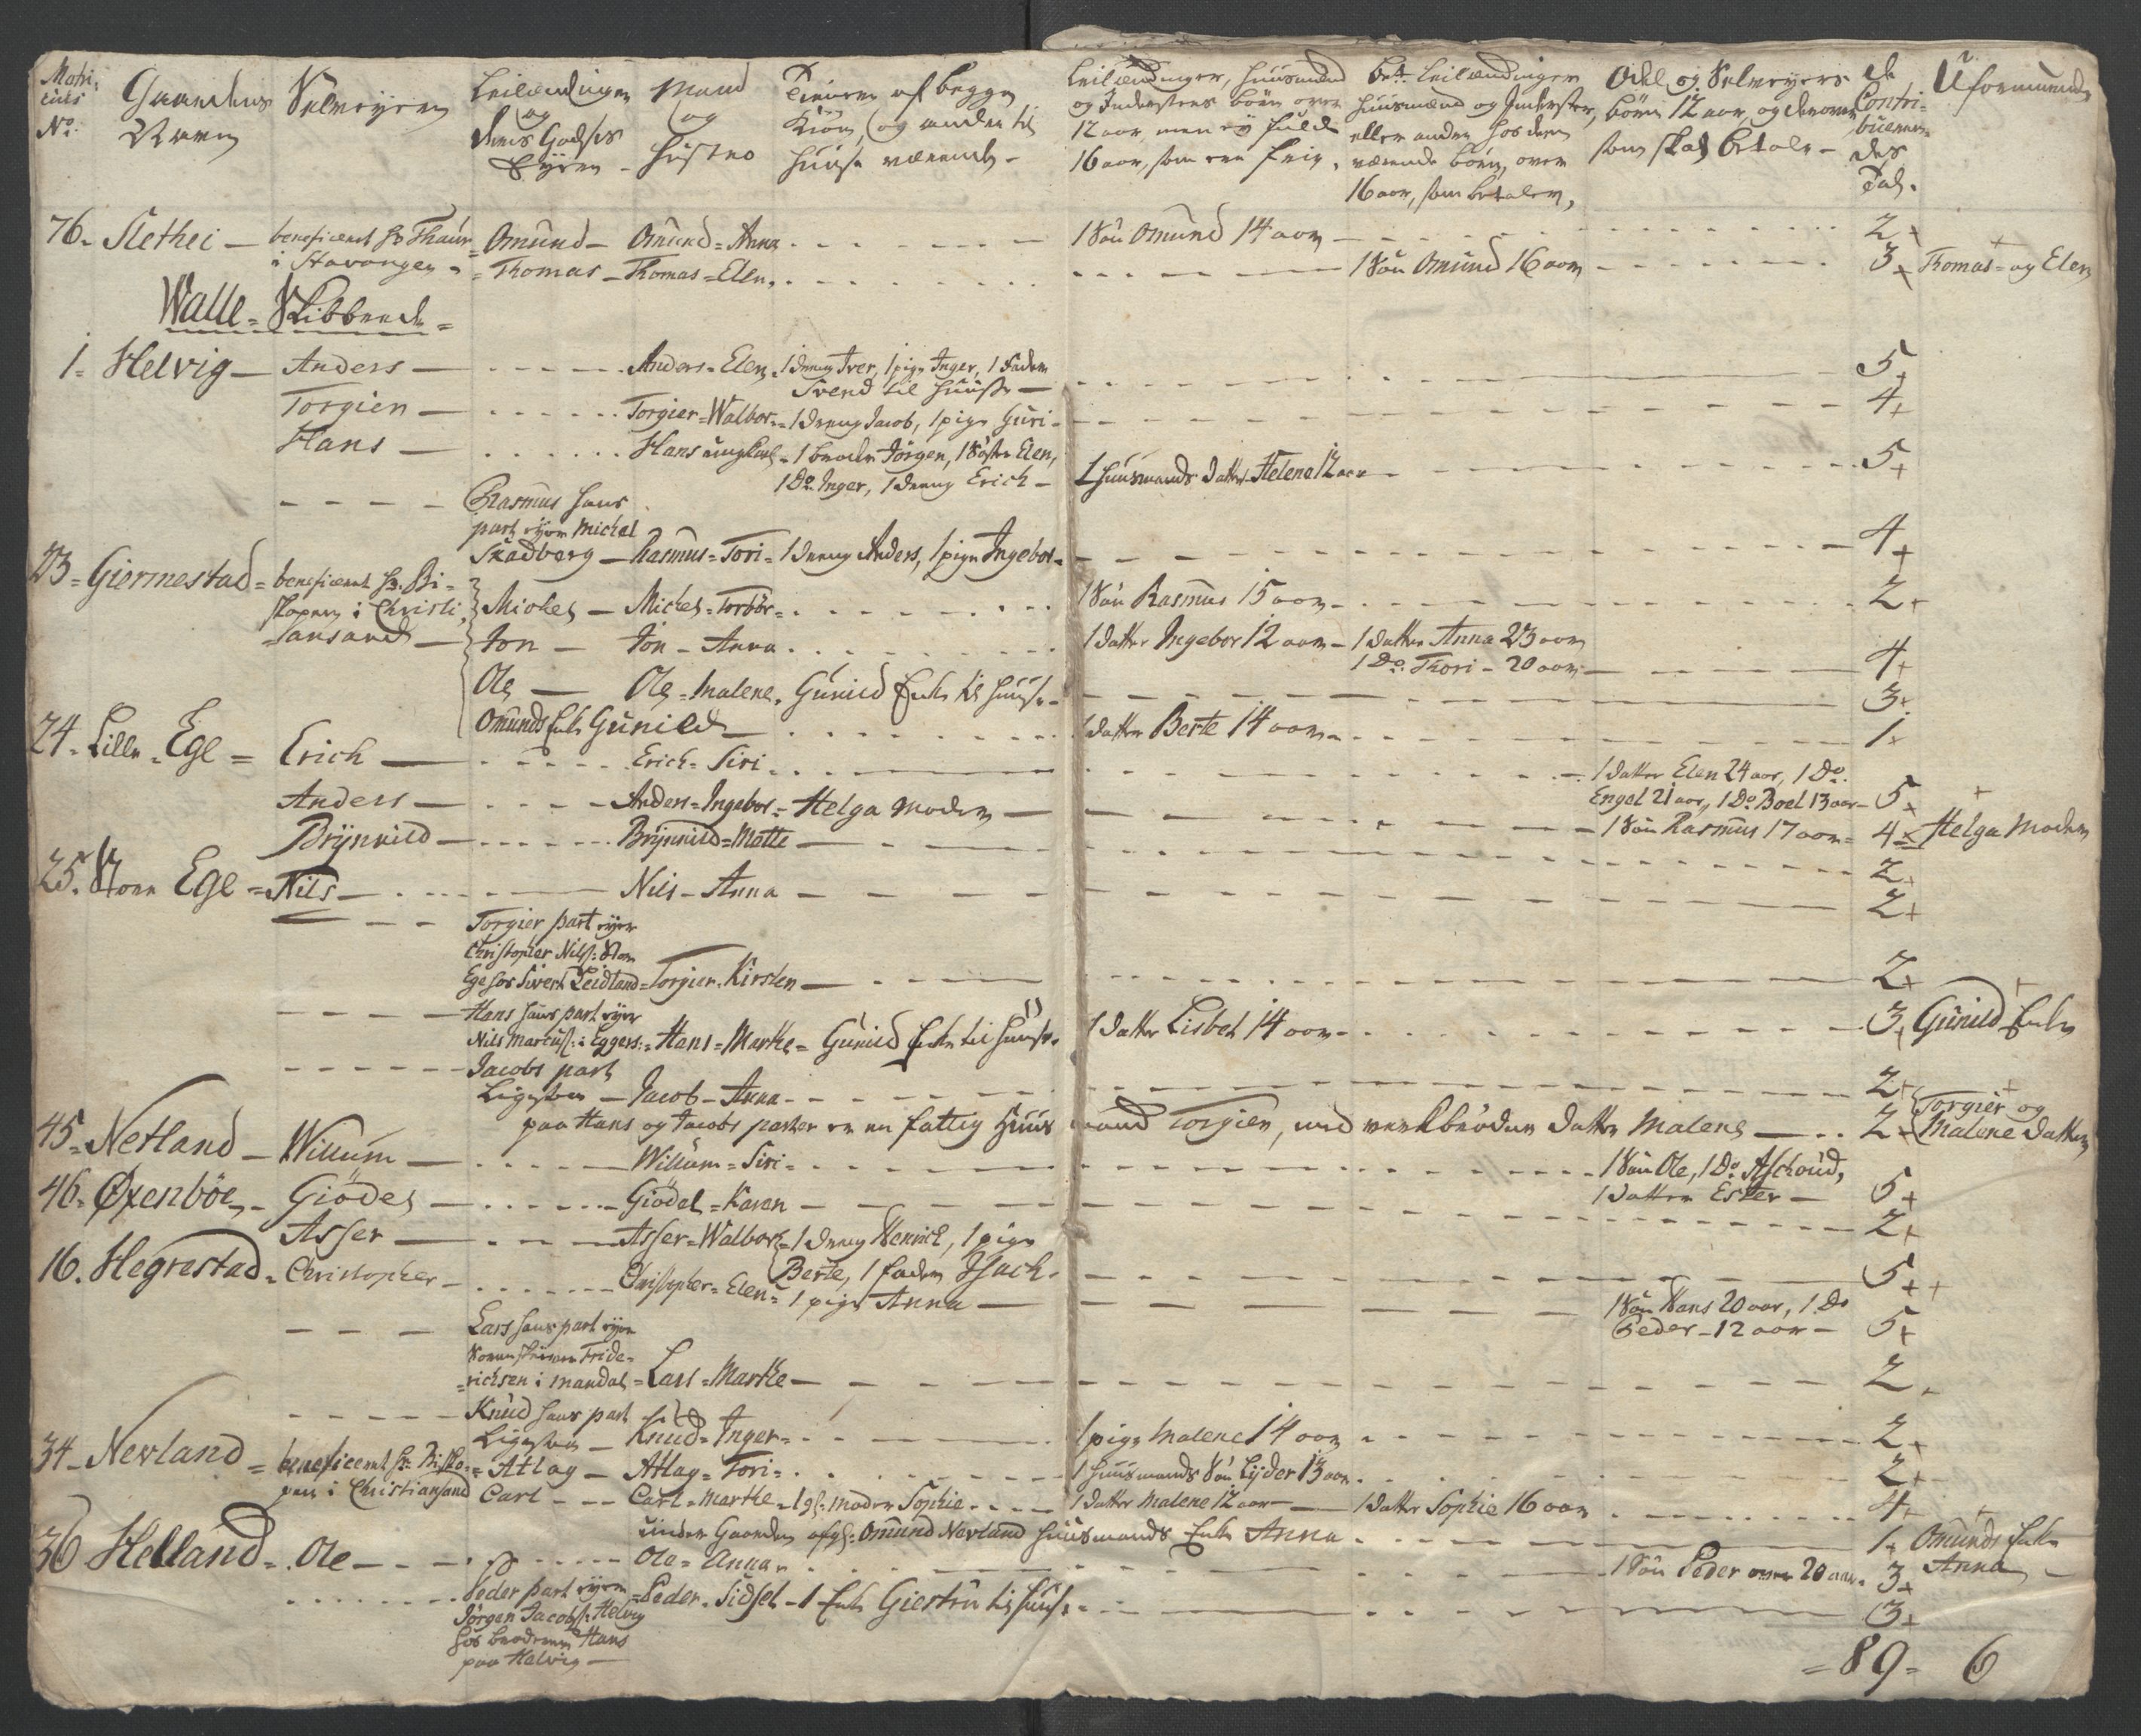 Matri-
culs
No.
Gaardens
Navn
Selveyere
Leilændinger
og
deres Godsis
Eyere -
Mand
og
Hustroe
Tienere af begge
Kiøn, og andre til
Huuse værende -
Leilændinger, Huusmænd
og Indersters børn over
12 aar, men ej fulde
16 aar, som ere frie,
bete. Leilændinger
Huusmænd og Inderster,
eller andre hos dem
værende børn, over
16 aar, som betaler,
Odel og Selveyers
børn 12 aar, og derover
som skal betale -
de
Contri-
bueren-
des
Tal.
Uformuende
76 - Slethei - beneficeret Hr. Thaur Omund - Omund = Anna - 1 Søn Omund 14 aar - 2
i Stavanger = Thomas - Thomas = Elen - 1 Søn Omund 16 aar - 3 Thomas = og Elen
Walle = Skibbrede =
1 = Helvig - Anders - Anders = Elen = 1 dreng Iver, 1 pige Inger, 1 Fader 5
Svend til Huuse -
Torgier - Torgier = Walbor = 1 dreng Jacob, 1 pige Guri - 4
Hans - Hans ungkarl = 1 broder Jørgen, 1 Søster Elen, 5
1 Do. Inger, 1 dreng Erich - 1 Huusmands datter Helene 12 aar
Rasmus hans
part eyer Michel
Skadberg - Rasmus = Tori = 1 dreng Anders, 1 pige Ingebor = 4
23 = Giermestad = beneficeret Hr. Bi-
skopen i Christi- Michel - Michel = Torbør = 1 Søn Rasmus 15 aar - 2
iansand - Jon - Jon - Anna 1 datter Ingebor 12 aar - 1 datter Anna 23 aar
1 Do. Thori - 20 aar - 4
Ole - Ole = Malene, Gunild Enke til Huuse - 3
Omunds Enke Gunild 1 datter Berte 14 aar - 1
24 - Lille - Ege = Erich - Erich = Siri 1 datter Elen 24 aar, 1 Do.
Engel 21 aar, 1 Do Boel 13 aar - 5
Anders - Anders = Ingebor = Helga Moder - 1 Søn Rasmus 17 aar = 4 Helga Moder
Brÿnnild - Brÿnnild = Mætte - 2
25. Store Ege = Nils - Nils - Anna 2
Torgier part eyer
Christopher Nilss: Store
Ege hos Sivert Leidland = Torgier = Kirsten - 2
Hans hans part eyer
Nils Marcuss: i Eggers: = Hans = Marthe = Gunild Enke til Huuse - 1 datter Lisbet 14 aar - 3 Gunild Enke
Jacobs part
Ligesaa - Jacob - Anna - 2
paa Hans og Jacobs parter er en fattig Huus mand Torgier, med datter Malene - 2 Torgier og
Malene datter
45 = Netland - Willum - Willum = Siri = 1 Søn Ole, 1 Do Aschoud,
1 datter Ester - 5
46. Øxenböe - Giödel - Giödel = Karen - 2
Asser - Asser = Walbor = 1 dreng Henrich, 1 pige
Berte, 1 fader Isach - 5
16. Hegrestad = Christopher - Christopher = Elen = 1 pige Anna - 1 Søn Hans 20 aar, 1 Do
Peder - 12 aar - 5
Lars hans part eyer
Fride-
richsen i Mandal = Lars = Marthe - 2
Knud hans part
Ligesaa - Knud = Inger = 1 pige Malene 14 aar - 2
34 - Nevland = beneficeert Hr. Bisko- = Atlag - Atlag = Tori = 1 huusmands Søn Lÿder 13 aar 2
pen i Christiansand Carl - Carl = Marthe = 1 gl: moder Sophie 1 datter Malene 12 aar - 1 datter Sophie 16 aar 4
under Gaarden afgl: Omund Nevland Huusmands Enke Anna 1 Omunds Enke
Anna
36 Helland = Ole - Ole = Anna 1 Søn Peder over 20 aar 3
Peder part eyer = Peder = Sidsel - 1 Enke Giestru til huuse 3
Jörgen Jacobss: Helvig
hos broderen Hans
paa Helvig -
= 89 = 6